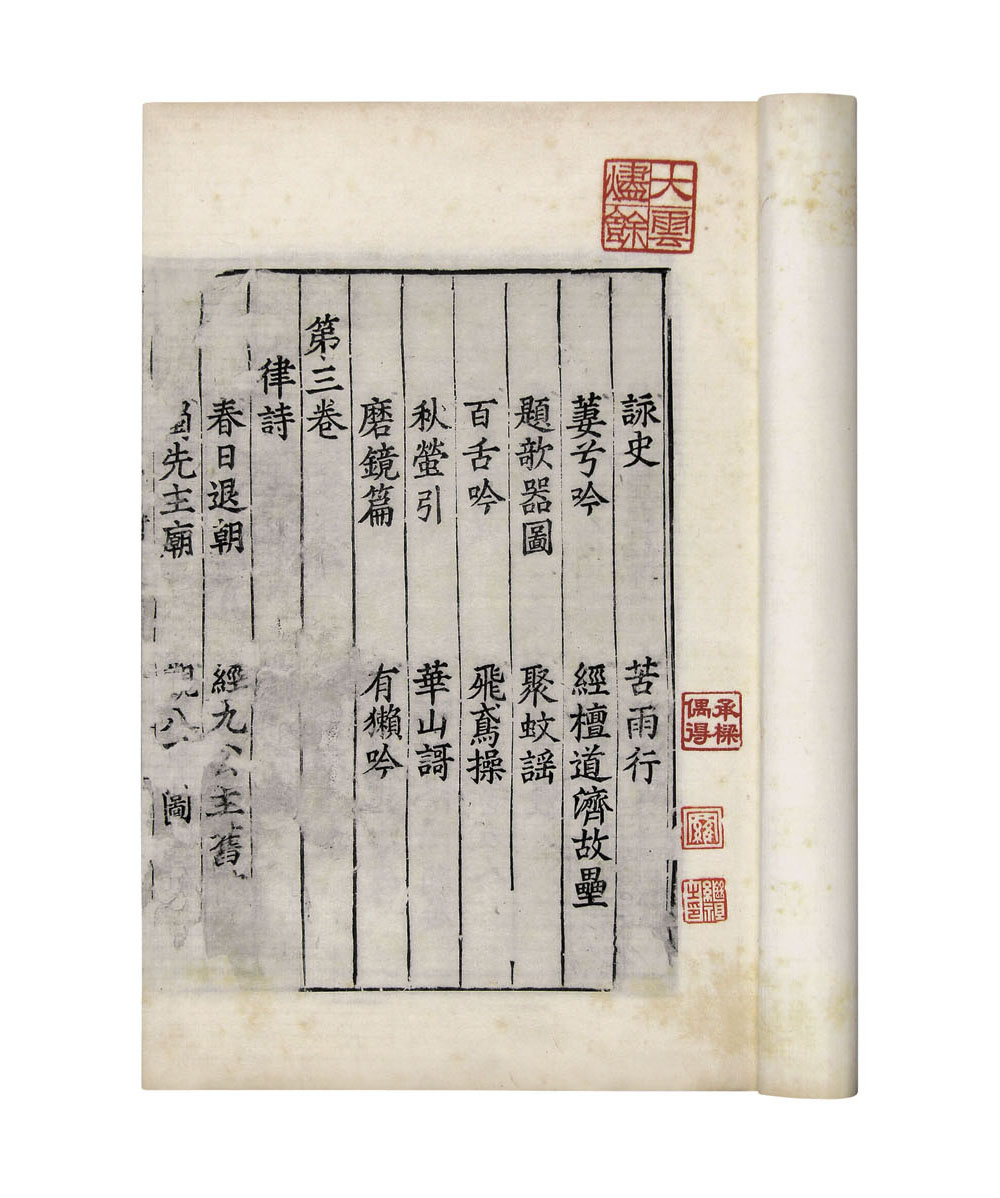 詠史 苦雨行
萋兮吟 經檀道濟故壘
題歌器圖 聚蚊謠
百舌吟 飛鳶操
秋螢引 華山謌
磨鏡篇 有獺吟
第三卷
律詩
春日退朝 經九公主舊
先主廟 觀八 圖
大雲燼餘
承樑偶得
繼祖之印